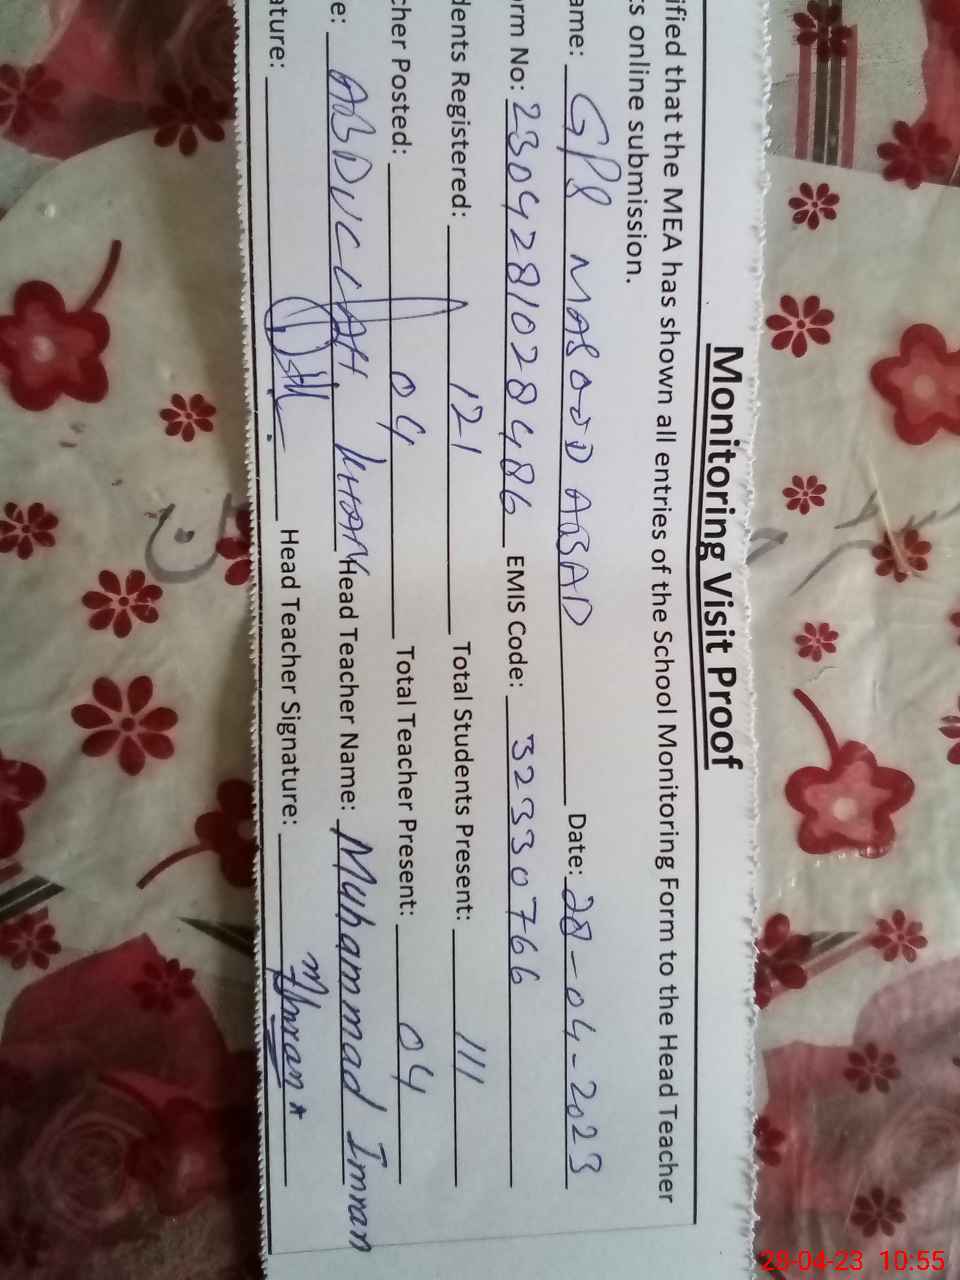 Monitoring Visit Proof
ified that the MEA has shown all entries of the School Monitoring Form to the Head Teacher
s online submission.
ame: GPS MASOOD ABAD Date: 28-04-2023
orm No: 23042810284486 EMIS Code: 32330766
dents Registered: 121 Total Students Present: 111
cher Posted: 04 Total Teacher Present: 04
e: ABDULLAH KHAN Head Teacher Name: Muhammad Imran
ature: Head Teacher Signature: M Imran
28-04-23 10:55